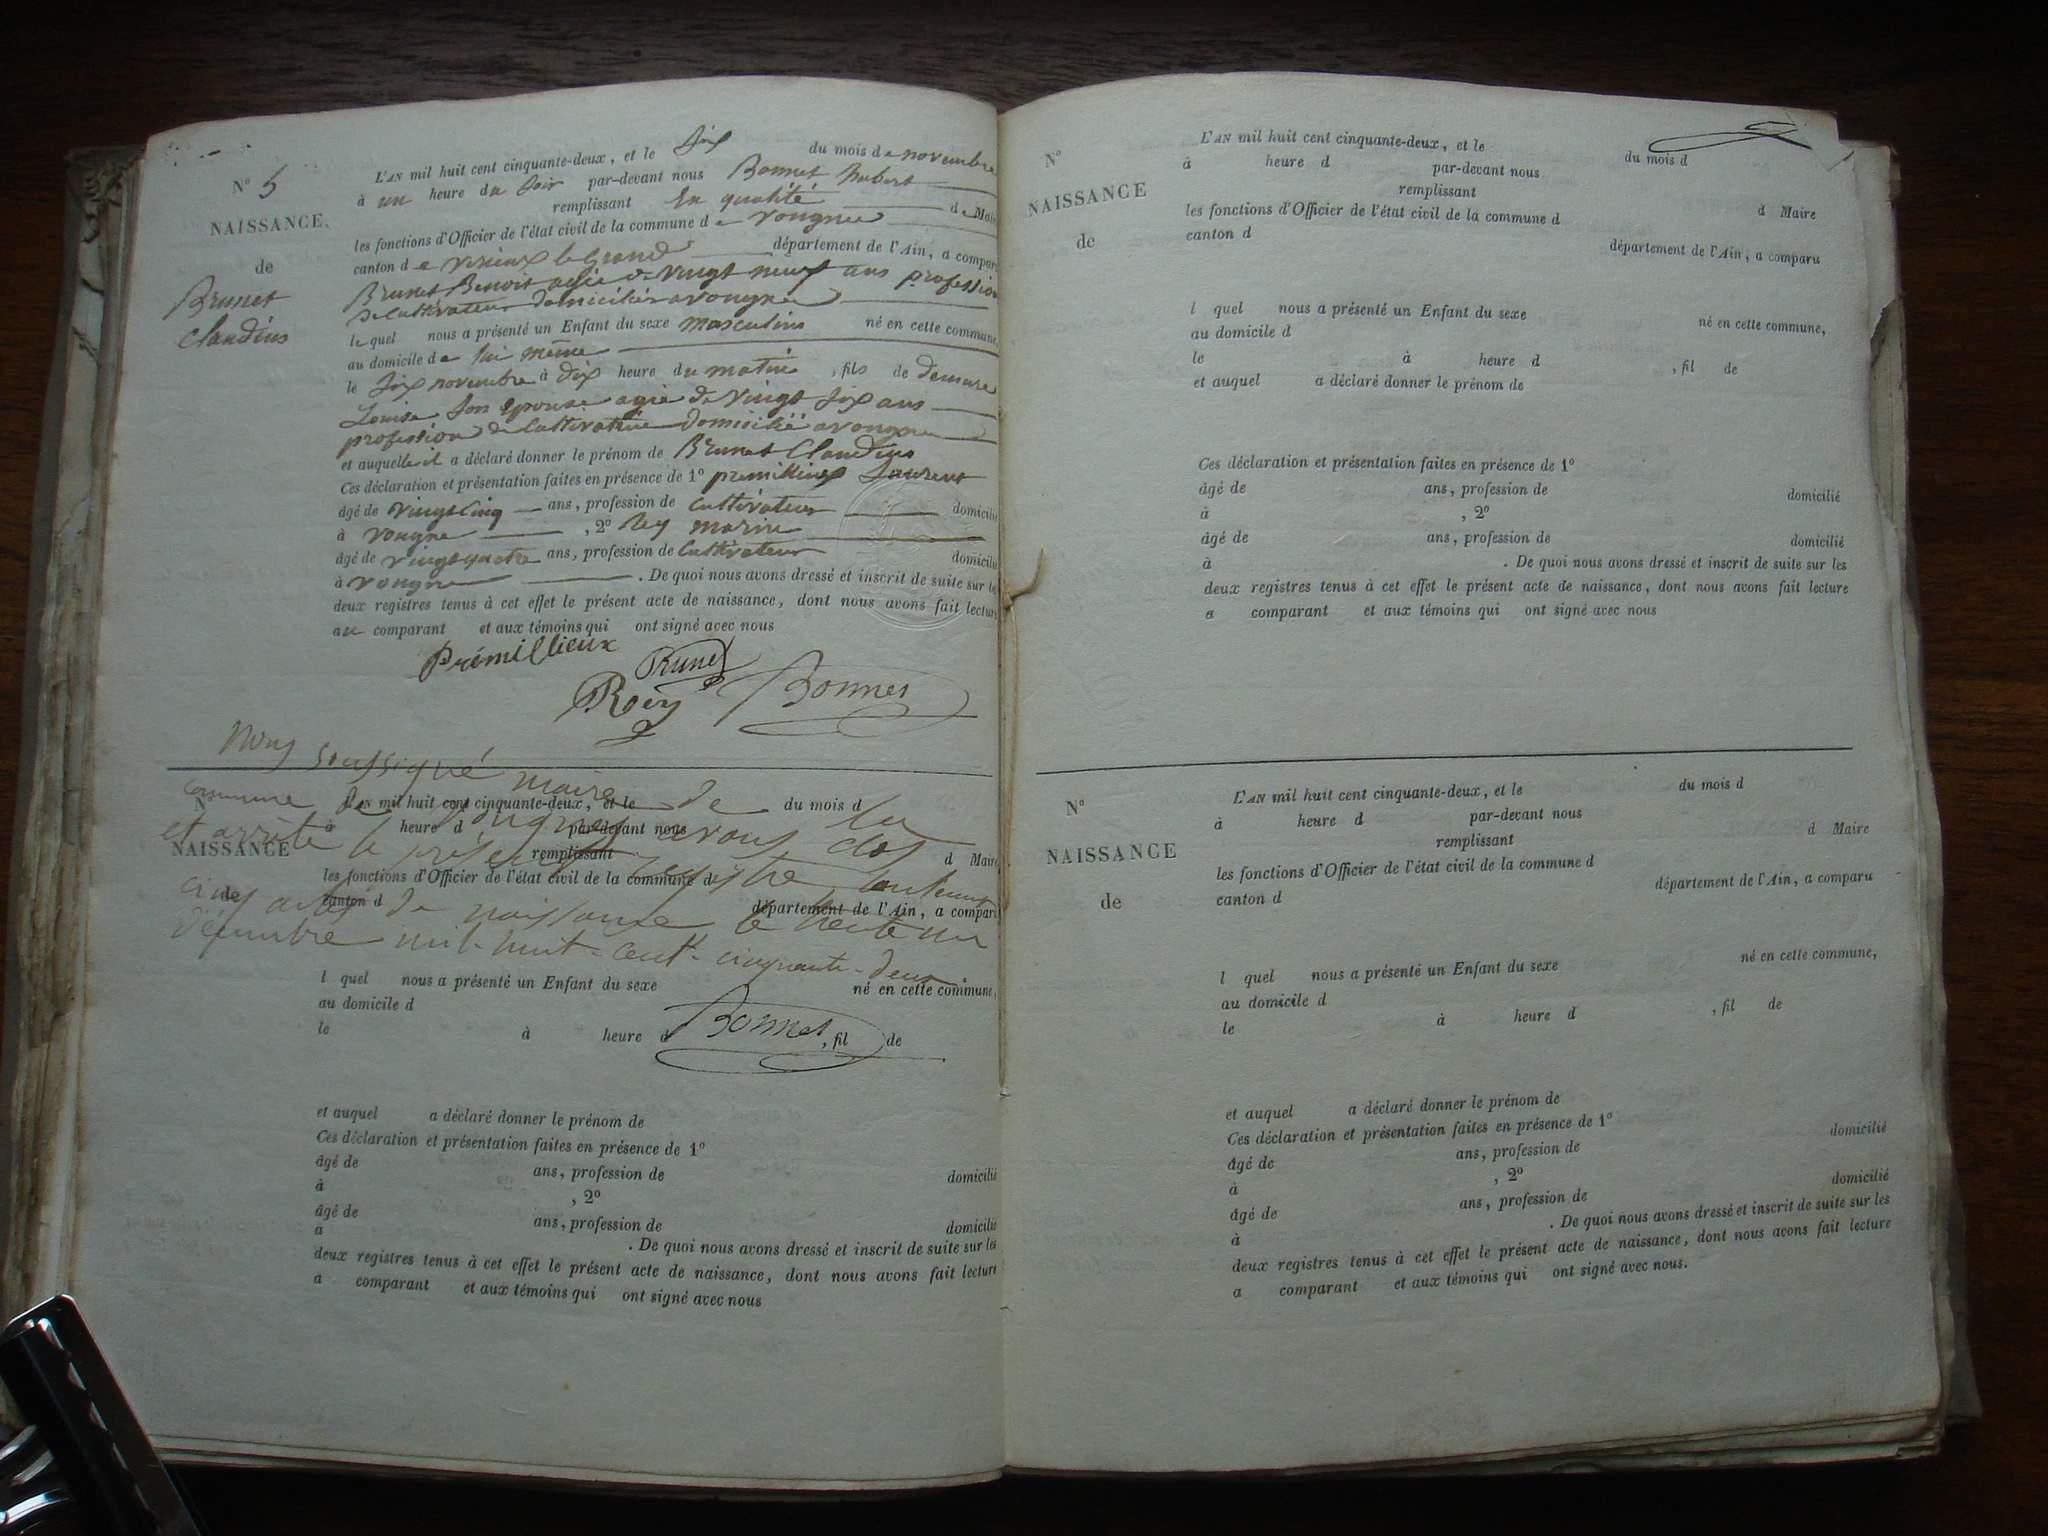 N° 5
NAISSANCE.
de
Brunet
Claudius
L'AN mil huit cent cinquante-deux, et le six du mois de novembre
à un heure du soir par-devant nous Bonnet hubert
remplissant en qualité de Maire
les fonctions d'Officier de l'état civil de la commune de vongnes
canton de virieux le grand département de l'Ain, a comparu
Brunet Benoit agée de vingt neuf ans profession
de cultivateur domiciliés a vongnes
lequel nous a présenté un Enfant du sexe masculins né en cette commune,
au domicile de lui même
le six novembre à dix heure du matins, fils de demeure
Louise son épouse agée de vingt six ans
profession de cultivatrice domicilié a vongnes
et auquelle il a déclaré donner le prénom de Brunet Claudius
Ces déclaration et présentation faites en présence de 1° premillieux Laurent
âgé de vingt cinq ans, profession de cultivateur domicilié
à vongne, 2° Rey marin
âgé de vingt quatre ans, profession de cultivateur domicilié
à vongne. De quoi nous avons dressé et inscrit de suite sur les
deux registres tenus à cet effet le présent acte de naissance, dont nous avons fait lecture
au comparant et aux témoins qui ont signé avec nous
Prémillieux
Brunet
Rey
Bonnet
Nous soussigné maire de la
commune de vongnes avons clos
et arrêté le présent registre contenant
cinq actes de naissance le trente un
décembre mil-huit-cent-cinquante-deux.
Bonnet
N°
NAISSANCE
de
L'AN mil huit cent cinquante-deux, et le du mois d
à heure d par-devant nous
remplissant d Maire
les fonctions d'Officier de l'état civil de la commune d
canton d département de l'Ain, a comparu
l quel nous a présenté un Enfant du sexe né en cette commune,
au domicile d
le à heure d , fil de
et auquel a déclaré donner le prénom de
Ces déclaration et présentation faites en présence de 1°
âgé de ans, profession de domicilié
à , 2°
âgé de ans, profession de domicilié
à . De quoi nous avons dressé et inscrit de suite sur les
deux registres tenus à cet effet le présent acte de naissance, dont nous avons fait lecture
a comparant et aux témoins qui ont signé avec nous
N°
NAISSANCE
de
L'AN mil huit cent cinquante-deux, et le du mois d
à heure d par-devant nous
remplissant d Maire
les fonctions d'Officier de l'état civil de la commune d
canton d département de l'Ain, a comparu
l quel nous a présenté un Enfant du sexe né en cette commune,
au domicile d
le à heure d , fil de
et auquel a déclaré donner le prénom de
Ces déclaration et présentation faites en présence de 1°
âgé de ans, profession de domicilié
à , 2°
âgé de ans, profession de domicilié
à . De quoi nous avons dressé et inscrit de suite sur les
deux registres tenus à cet effet le présent acte de naissance, dont nous avons fait lecture
a comparant et aux témoins qui ont signé avec nous
N°
NAISSANCE
de
L'AN mil huit cent cinquante-deux, et le du mois d
à heure d par-devant nous
remplissant d Maire
les fonctions d'Officier de l'état civil de la commune d
canton d département de l'Ain, a comparu
l quel nous a présenté un Enfant du sexe né en cette commune,
au domicile d
le à heure d , fil de
et auquel a déclaré donner le prénom de
Ces déclaration et présentation faites en présence de 1°
âgé de ans, profession de domicilié
à , 2°
âgé de ans, profession de domicilié
à . De quoi nous avons dressé et inscrit de suite sur les
deux registres tenus à cet effet le présent acte de naissance, dont nous avons fait lecture
a comparant et aux témoins qui ont signé avec nous.